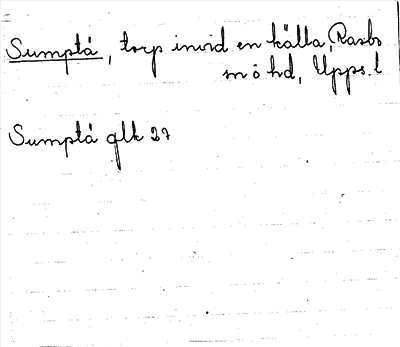 Sumptå, torp invid en källa, Rasbo
s n ö hd, Upps. l
Sumptå glk 27